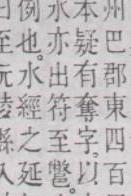 州巴郡東四百
本疑有奪字以
水亦出符至鼈
例也水經之延
至元陵縣入